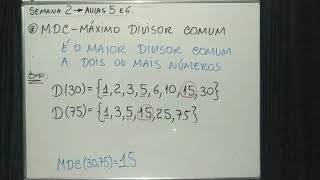 SEMANA 2 → AULAS 5 E 6.
⊛ M.D.C - MÁXIMO DIVISOR COMUM
É O MAIOR DIVISOR COMUM
A DOIS OU MAIS NÚMEROS.
Exp:
D(30) = {1,2,3,5,6,10,15,30}
D(75) = {1,3,5,15,25,75}
MDC(30,75) = 15